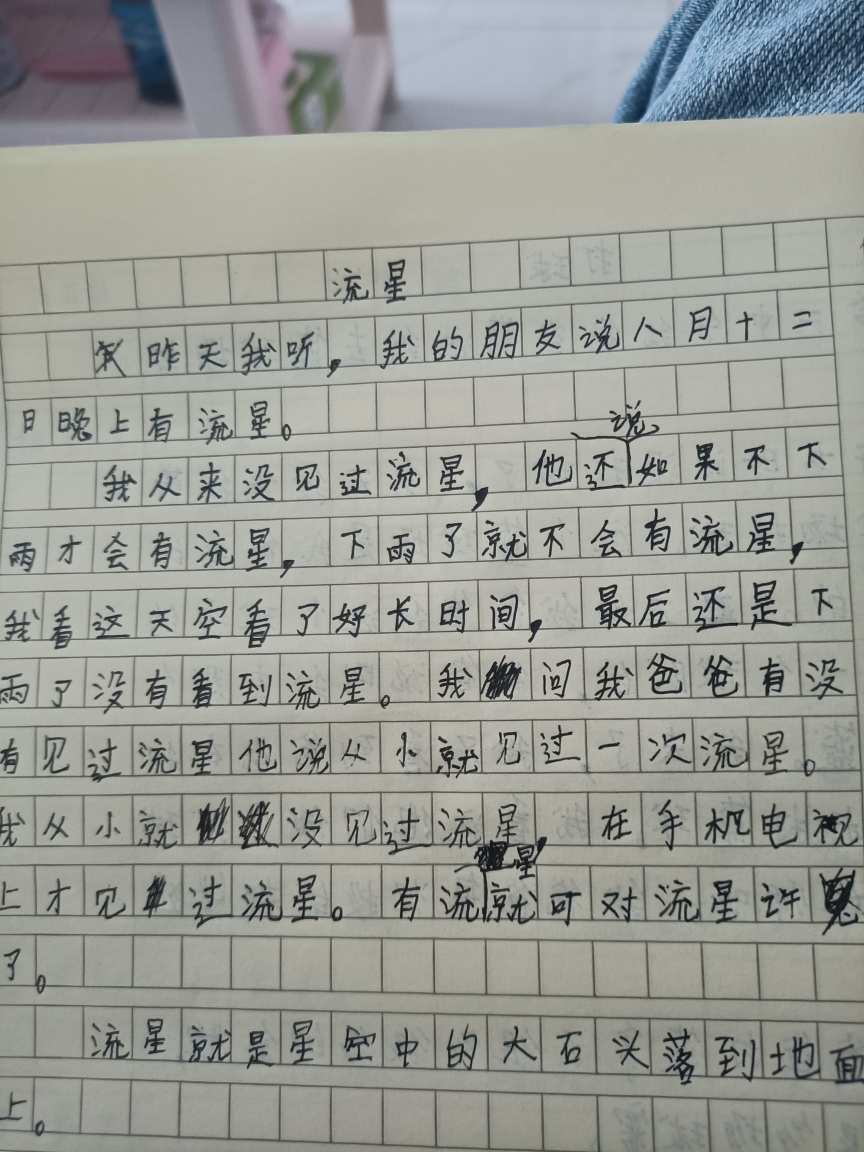 流星
我昨天我听，我的朋友说八月十二
日晚上有流星。
我从来没见过流星，他还说如果不下
雨才会有流星，下雨了就不会有流星，
我看这天空看了好长时间，最后还是下
雨了没有看到流星。我问我爸爸有没
有见过流星他说从小就见过一次流星。
我从小就没见过流星，在手机电视
上才见过流星。有流星就可对流星许
了。
流星就是星空中的大石头落到地面
上。